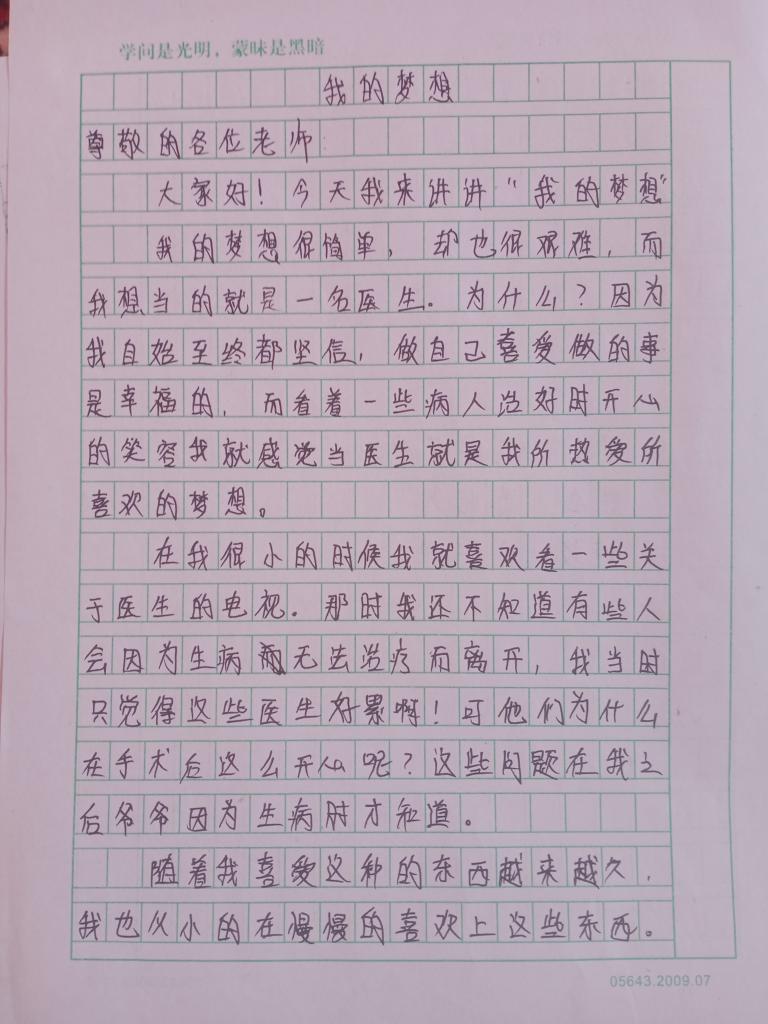 学问是光明，蒙昧是黑暗
我的梦想
尊敬的各位老师
大家好！今天我来讲讲“我的梦想”
我的梦想很简单，却也很艰难，而
我想当的就是一名医生。为什么？因为
我自始至终都坚信，做自己喜爱做的事
是幸福的，而看着一些病人治好时开心
的笑容我就感觉当医生就是我所热爱所
喜欢的梦想。
在我很小的时候我就喜欢看一些关
于医生的电视。那时我还不知道有些人
会因为生病无法治疗而离开，我当时
只觉得这些医生好累啊！可他们为什么
在手术后这么开心呢？这些问题在我之
后爷爷因为生病时才知道。
随着我喜爱这种的东西越来越久，
我也从小的在慢慢的喜欢上这些东西。
05643.2009.07